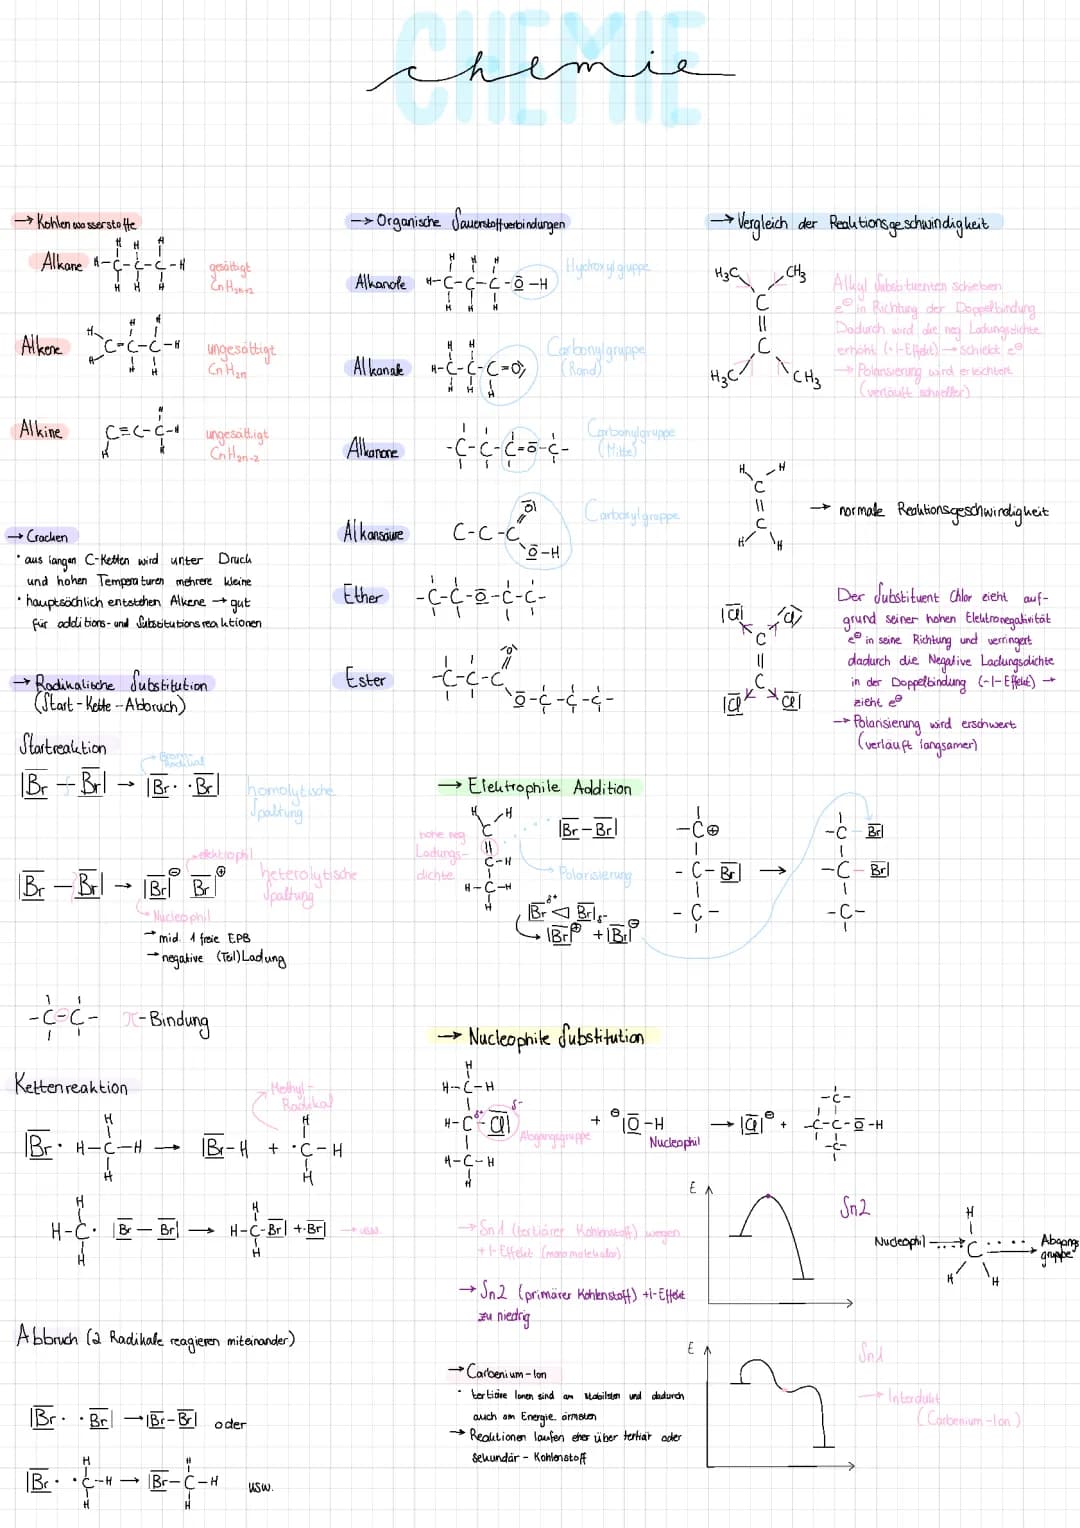 CHEMIE
chemie
→ Kohlenwasserstoffe
Alkane
gesättigt
CnH2n+2
Alkene
ungesättigt
CnH2n
Alkine
ungesättigt
CnH2n-2
→ Cracken
• aus langen C-Ketten wird unter Druck
und hohen Temperaturen mehrere kleine
• hauptsächlich entstehen Alkene → gut
für additions- und Substitutionsreaktionen
→ Radikalische Substitution
(Start - Kette - Abbruch)
Startreaktion
Brom-
Radikal
|Br — Br| → |Br· ·Br|
homolytische
Spaltung
elektrophil
|Br — Br| → |Br|⊖ Br|⊕
heterolytische
Spaltung
Nucleophil
→ mid. 1 freie EPB
→ negative (Teil)Ladung
-C=C- π-Bindung
Kettenreaktion
Methyl-
Radikal
|Br· H-C-H → |Br-H + ·C-H
H-C· |Br — Br| → H-C-Br| + ·Br| → usw.
Abbruch (2 Radikale reagieren miteinander)
|Br· ·Br| → |Br-Br| oder
|Br· ·C-H → |Br-C-H usw.
→ Organische Sauerstoffverbindungen
Alkanole
H-C-C-C-O-H
Hydroxylgruppe
Alkanale
H-C-C-C=O
Carbonylgruppe
(Rand)
Alkanone
-C-C-C=O-C-
Carbonylgruppe
(Mitte)
Alkansäure
C-C-C
O
O-H
Carboxylgruppe
Ether
-C-C-O-C-C-
Ester
-C-C-C
O
O-C-C-C-
→ Elektrophile Addition
hohe neg
Ladungs-
dichte
|Br-Br|
→ Polarisierung
δ+
|Br ◁ Br| δ-
→ |Br|⊕ + |Br|⊖
-C⊕
-C-Br|
-C-
→
-C Br|
-C-Br|
-C-
→ Nucleophile Substitution
H
H-C-H
H-C δ+ - Cl| δ-
H-C-H
H
Abgangsgruppe
+ ⊖|O-H
Nucleophil
→ |Cl|⊖ +
-C-C-O-H
→ Sn1 (tertiärer Kohlenstoff) wegen
+I-Effekt (monomolekular)
→ Sn2 (primärer Kohlenstoff) +I-Effekt
zu niedrig
→ Carbenium-Ion
• tertiäre Ionen sind am stabilsten und dadurch
auch am Energie ärmsten
→ Reaktionen laufen eher über tertiär oder
Sekundär - Kohlenstoff
E
Sn2
Nucleophil
H
C
H H
Abgangs
gruppe
E
Sn1
→ Interdukt
(Carbenium-Ion)
→ Vergleich der Reaktionsgeschwindigkeit
H3C CH3
C
C
H3C CH3
Alkyl Substituenten schieben
e⊖ in Richtung der Doppelbindung
Dadurch wird die neg Ladungsdichte
erhöht (+I-Effekt) → schiebt e⊖
→ Polarisierung wird erleichtert
(verläuft schneller)
H H
C
C
H H
→ normale Reaktionsgeschwindigkeit
|Cl Cl|
C
C
|Cl Cl|
Der Substituent Chlor zieht auf-
grund seiner hohen Elektronegativität
e⊖ in seine Richtung und verringert
dadurch die Negative Ladungsdichte
in der Doppelbindung (-I-Effekt) →
zieht e⊖
→ Polarisierung wird erschwert
(verläuft langsamer)